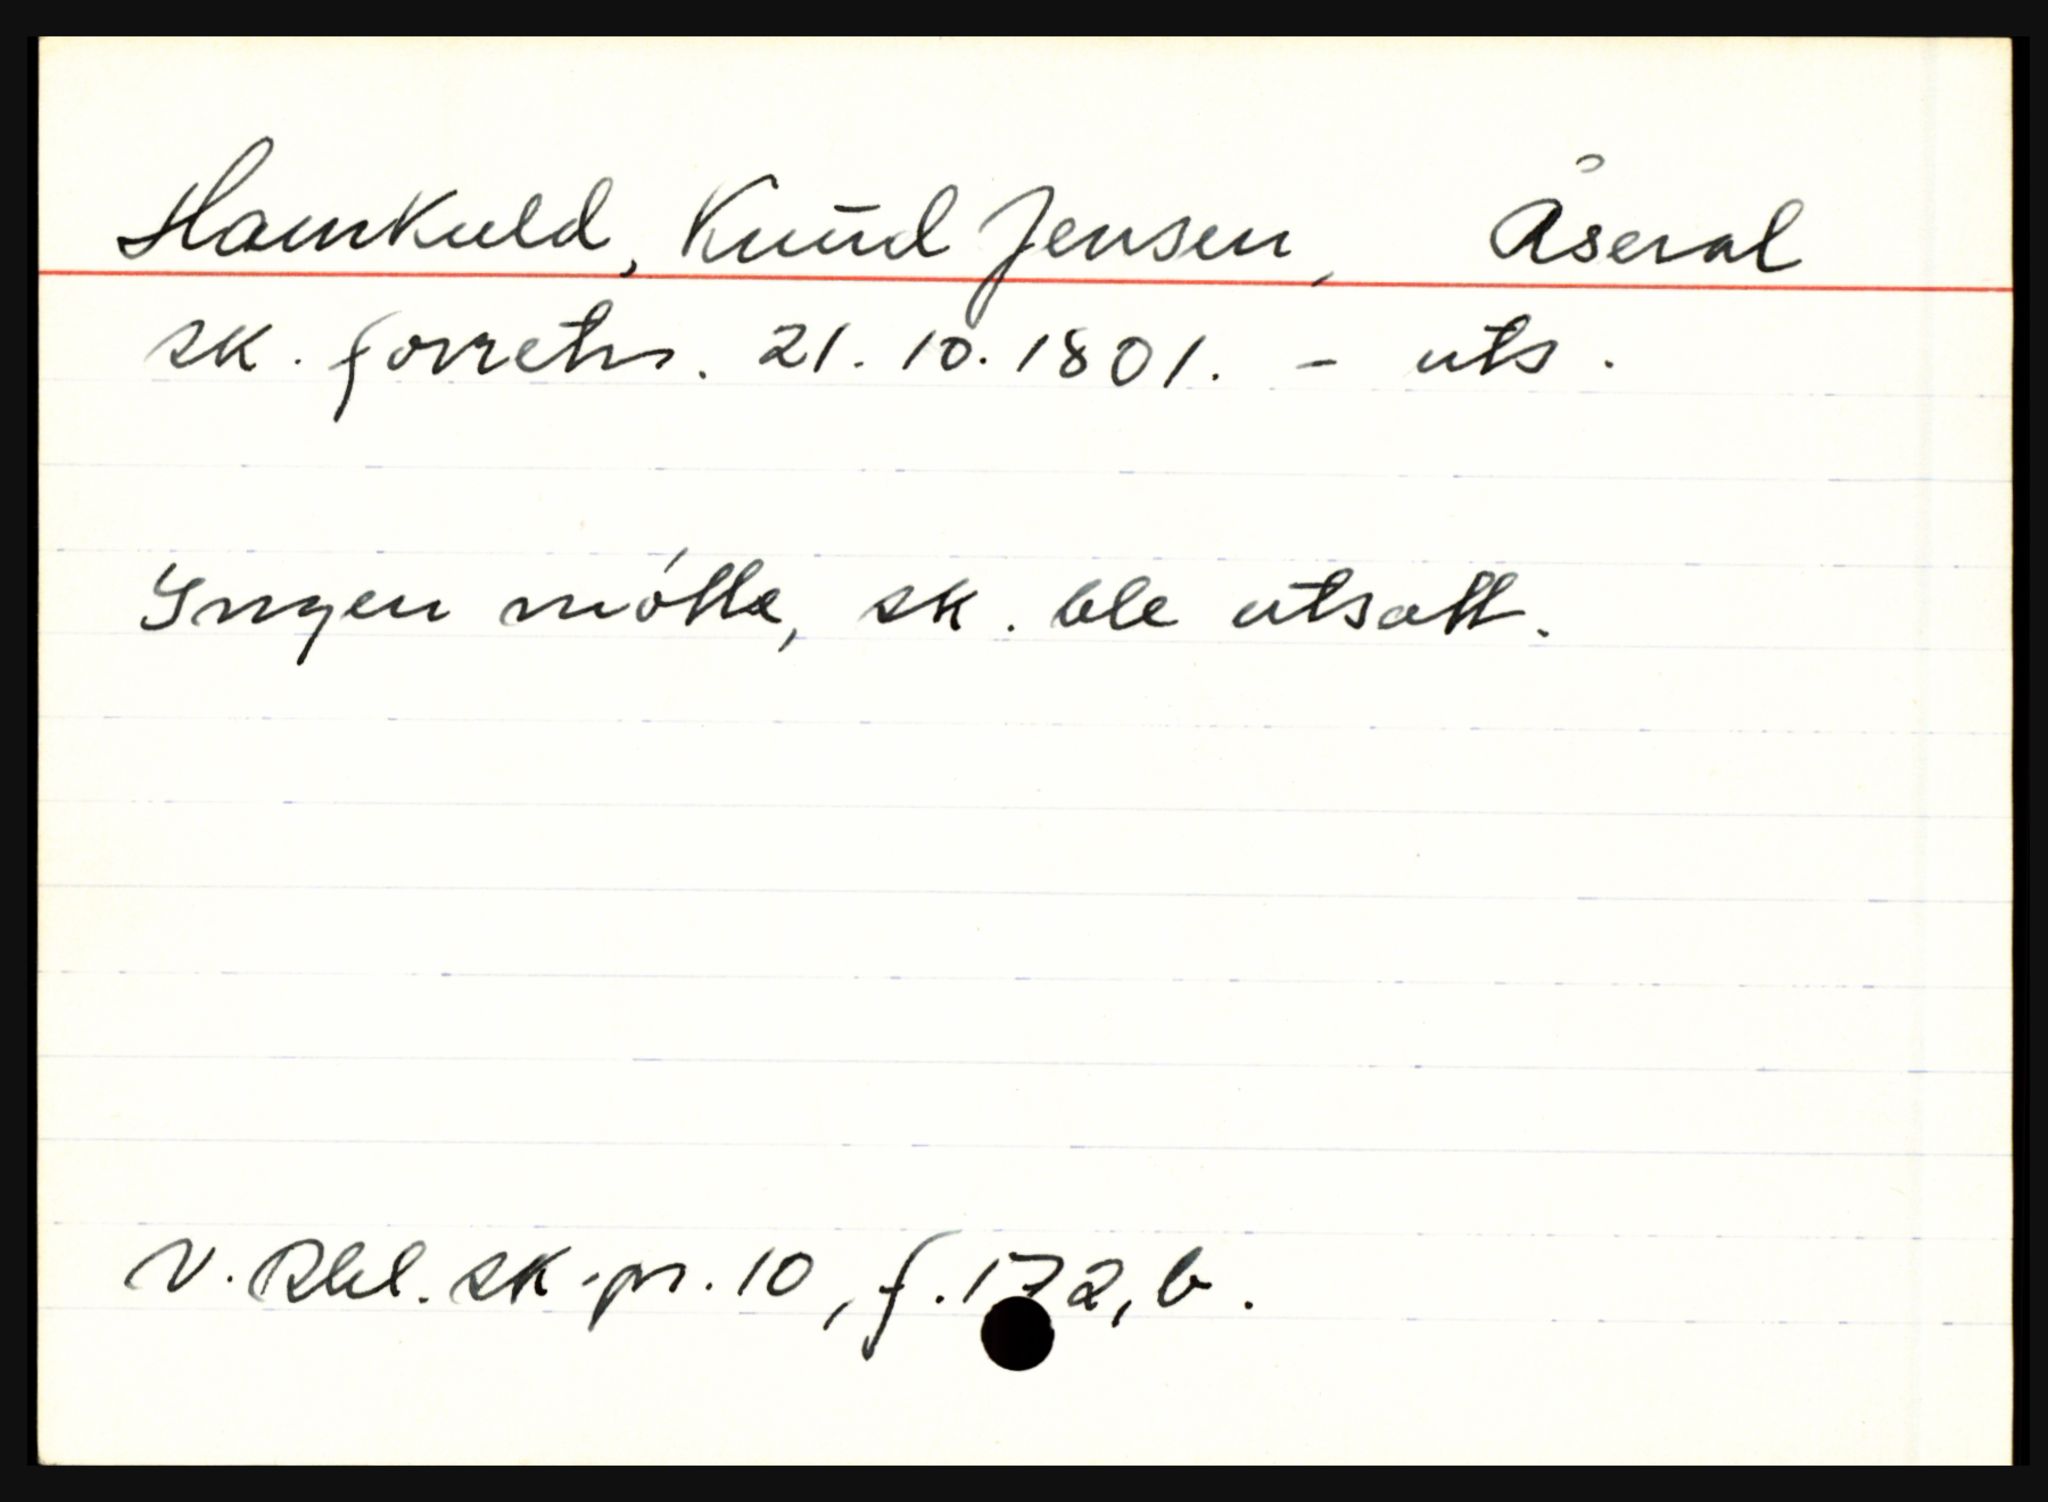 Hamkuld, Knud Jensen, Åseral
sk. forretn. 21.10.1801. - uts.
Ingen møtte, sk. ble utsatt.
V. Rbl. sk-pr. 10, f. 172, b.